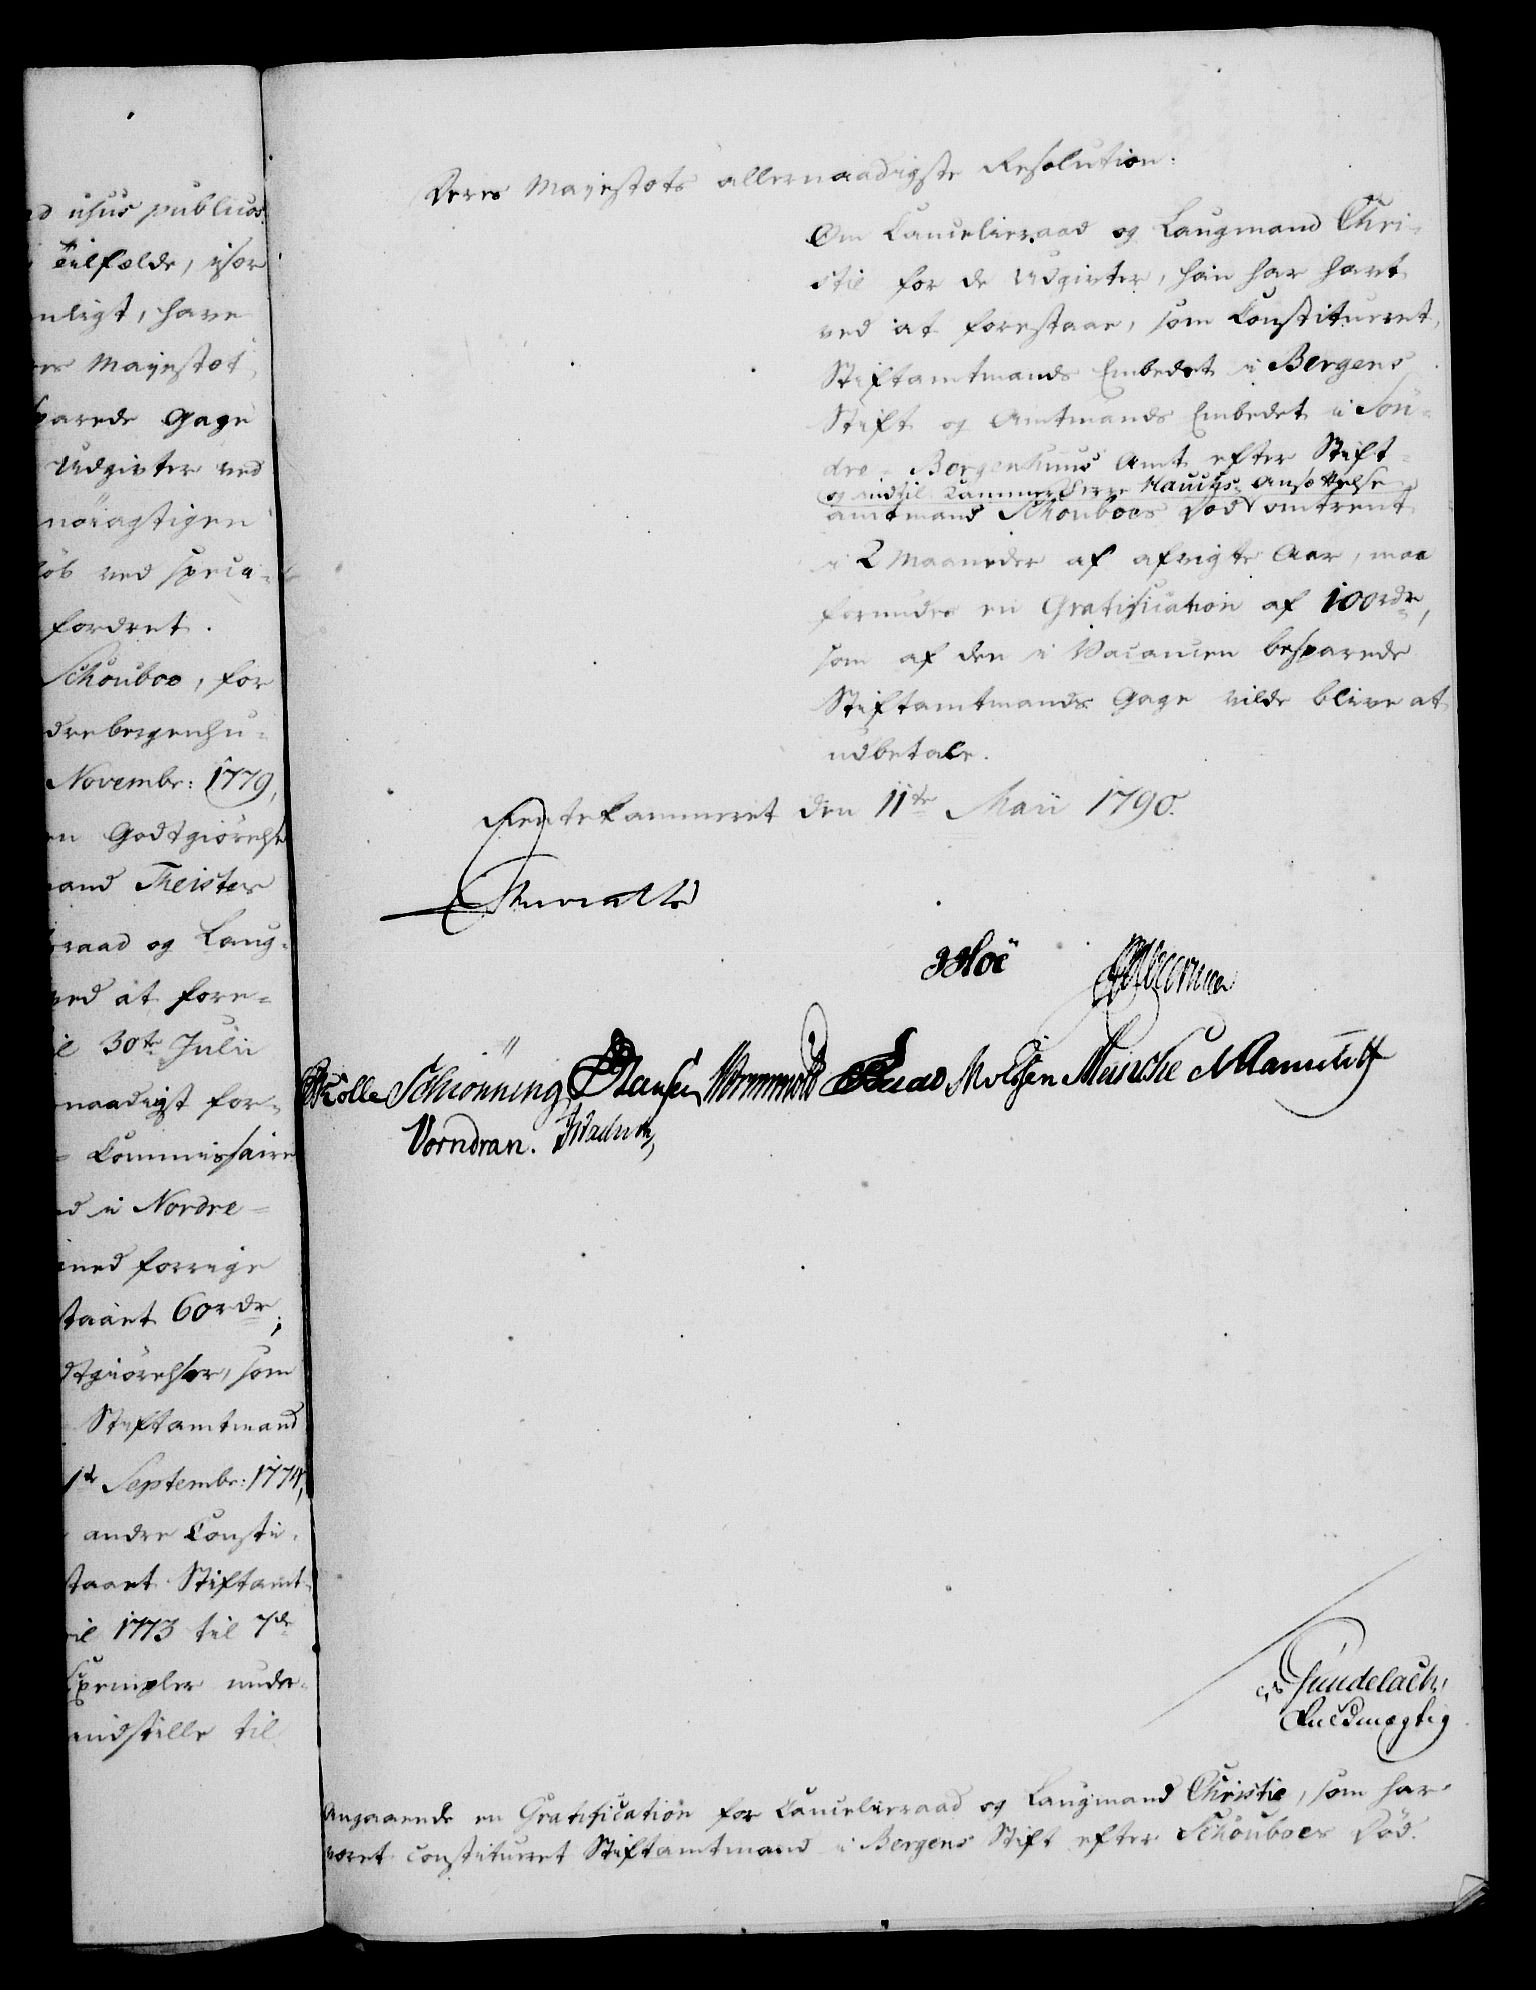 ad usus publicos
Tilfælde, især
nligt, have
Majestæt
sparede Gage
Udgivter ved
nöiagtigen
löb ved speci-
fordret.
Schouboe, for
drebergenhu-
Novembr: 1779,
en Godtgiörelse
mand Fleister
raad og Laug-
ved at fore-
til 30te Julii
naadigst for-
Commissaire
d i Nordre-
ned forrige
staaet 60 rdr;
dtgiörelser, som
Stiftamtmand
1te Septembr: 1774,
andre Consti-
staaet Stiftamt-
il 1773 til 7de
Exempler under-
indstille til
Deres Majestæts allernaadigste Resolution:
Om Cancelieraad og Laugmand Chri-
stie for de Udgivter, han har havt
ved at forestaae, som Constitueret,
Stiftamtmands Embedet i Bergens
Stift og Amtmands Embedet i Sön-
dre-Bergenhuus Amt efter Stift-
og indtil Kammerherre Hauchs Ansættelse
amtmand Schouboes Död omtrent
i 2 Maaneder af afvigte Aar, maa
forundes en Gratification af 100 rdr,
som af den i Vacancen besparede
Stiftamtmands Gage vilde blive at
udbetale.
Rentekammeret den 11te Maii 1790.
Schionning Hansen Wormskiold Meinche
Vorndran.
Gundelach,
Fuldmægtig
Angaaende en Gratification for Cancelieraad og Laugmand Christie, som har
været constitueret Stiftamtmand i Bergens Stift efter Schouboes Död.